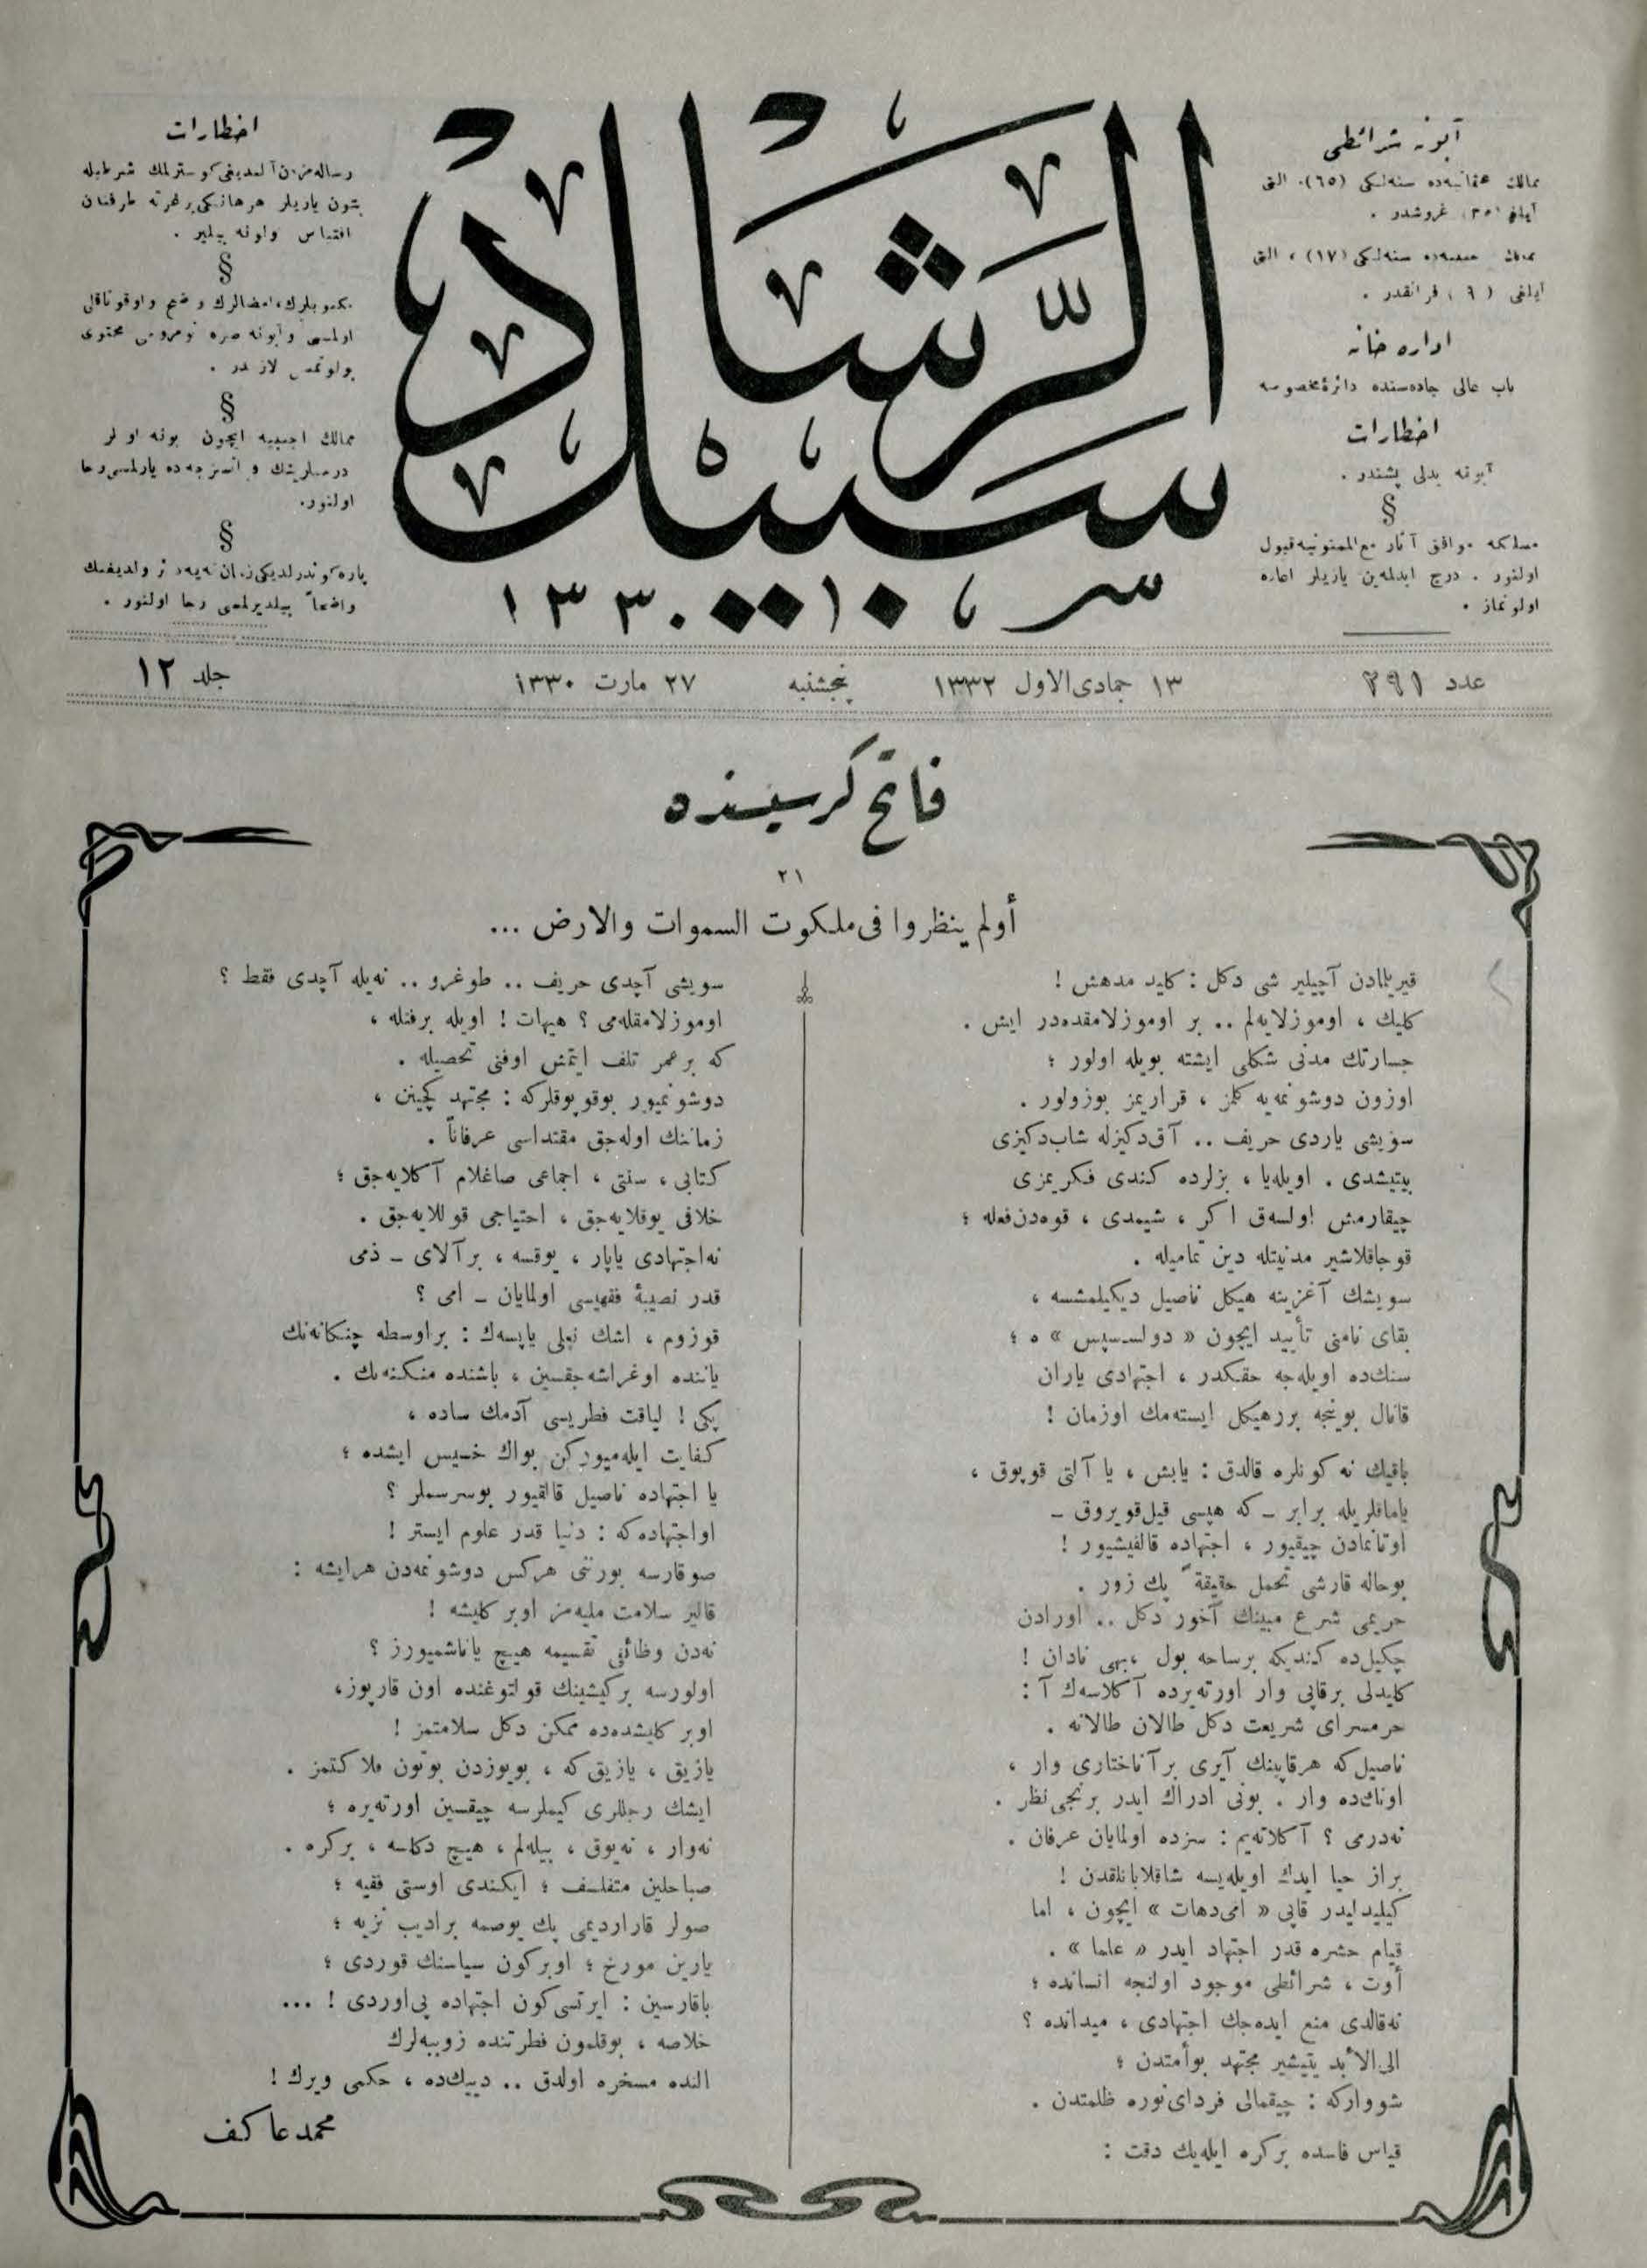 آبونه شرائطی
ممالك عثمانیه‌ده سنه‌لكی (٦٥)، التی
آیلغی (٣٥) غروشدر .
ممالك اجنبیه‌ده سنه‌لكی (١٧) ، التی
آیلغی (٩) فرانقدر .
اداره خانه
باب عالی جاده‌سنده دائرۀ مخصوصه
اخطارات
آبونه بدلی پشیندر .
§
مسلكمه موافق آثار مع‌الممنونیه قبول
اولنور . درج ایدلمه‌ین یازیلر اعاده
اولونماز .
سبيل الرشاد
١٣٣٠
اخطارات
رساله‌مزدن آلندیغی كوسترلمك شرطیله
بتون یازیلر هرهانكی بر غزته طرفندن
اقتباس اولونه بیلیر .
§
مكتوبلرك، امضالرك واضح و اوقوناقلی
اولمسی و آبونه صره نومروسنی محتوی
بولونمسی لازمدر .
§
ممالك اجنبیه ایچون آبونه اولانلر
آدرسلرینك فرانسزجه‌ده یازلمسی رجا
اولنور.
§
پاره كوندرلدیكی زمان نه‌یه دائر اولدیغنك
واضحاً بیلدیرلمسی رجا اولنور .
عدد ٢٩١
١٣ جمادی‌الاول ١٣٣٢
پنجشنبه
٢٧ مارت ١٣٣٠
جلد ١٢
فاتح كرسیسنده
٢١
أولم ينظروا فی ملكوت السموات والارض ...
قیریلمادن آچیلیر شی دكل : كلید مدهش !
كلیك ، اوموزلایه‌لم .. بر اوموزلامقده‌در ایش .
جسارتك مدنی شكلی ایشته بویله اولور ؛
اوزون دوشونمه‌یه كلمز ، قراریمز بوزولور .
سویشی یاردی حریف .. آق‌دكیزله شاب‌دكیزی
بیتیشدی . اویله‌یا ، بزلرده كندی فكریمزی
چیقارمش اولسه‌ق اكر ، شیمدی ، قوه‌دن‌فعله ؛
قوجاقلاشیر مدنیتله دین تمامیله .
سویشك آغزینه هیكل ناصیل دیكیلمشسه ،
بقای نامنی تأیید ایچون « دولسه‌سپس » ه ؛
سنكده اویله‌جه حقكدر ، اجتهادی یاران
قانال بوینجه بررهیكل ایسته‌مك اوزمان !
باقیك نه كونلره قالدق : یابش ، یا آلتی قوپوق ،
یامافلریله برابر ـ كه هپسی قیل‌قویروق ـ
اوتانمادن چیقیور ، اجتهاده قالقیشیور !
بوحاله قارشی تحمل حقیقةً پك زور .
حریمی شرع مبینك آخور دكل .. اورادن
چكیل‌ده كندیكه برساحه بول ، بهی نادان !
كلیدلی برقاپی وار اورته‌یرده آكلاسه‌ك آ :
حرمسرای شریعت دكل طالان طالانه .
ناصیل‌كه هرقاپینك آیری برآناختاری وار ،
اونك‌ده وار . بونی ادراك ایدر برنجی نظر .
نه‌درمی ؟ آكلاته‌یم : سزده اولمایان عرفان .
براز حیا ایدك اویله‌یسه شاقلابانلقدن !
كیلیدلیدر قاپی « امی‌دهات » ایچون ، اما
قیام حشره قدر اجتهاد ایدر « علما » .
أوت ، شرائطی موجود اولنجه انسانده ؛
نه‌قالدی منع ایده‌جك اجتهادی ، میدانده ؟
الی‌الأبد یتیشیر مجتهد بوأمتدن ؛
شوواركه : چیقمالی فردای‌نوره ظلمتدن .
قیاس فاسده بركره ایله‌یك دقت :
سویشی آچدی حریف .. طوغرو .. نه‌یله آچدی فقط ؟
اوموزلامقله‌می ؟ هیهات ! اویله برفنله ،
كه برعمر تلف ایتمش اوفنی تحصیله .
دوشونمیور بوقوپوقلركه : مجتهد كچینن ،
زماننك اوله‌جق مقتداسی عرفاناً .
كتابی ، سنتی ، اجماعی صاغلام آكلایه‌جق ؛
خلافی یوقلایه‌جق ، احتیاجی قوللایه‌جق .
نه‌اجتهادی یاپار ، یوقسه ، برآلای ـ ذمی
قدر نصیبۀ فقهیسی اولمایان ـ امی ؟
قوزوم ، اشك نعلی یاپسه‌ك : براوسطه چنكانه‌نك
یاننده اوغراشه‌جقسین ، باشنده منكنه‌نك .
پكی ! لیاقت فطریسی آدمك ساده ،
كفایت ایله‌میوركن بواك خسیس ایشده ؛
یا اجتهاده ناصیل قالقیور بوسرسملر ؟
اواجتهادكه : دنیا قدر علوم ایستر !
صوقارسه بورننی هركس دوشونمه‌دن هرایشه :
قالیر سلامت ملیه‌مز اوبر كلیشه !
نه‌دن وظائفی تقسیمه هیچ یاناشمیورز ؟
اولورسه بركیشینك قولتوغنده اون قارپوز،
اوبر كلیشده‌ده ممكن دكل سلامتمز !
یازیق ، یازیق‌كه ، بویوزدن بوتون فلاكتمز .
ایشك رجللری كیملرسه چیقسین اورته‌یره ؛
نه‌وار ، نه‌یوق ، بیله‌لم ، هیچ دكلسه ، بركره .
صباحلین متفلسف ؛ ایكندی اوستی فقیه ؛
صولر قاراردیمی پك یوصمه برادیب نزیه ؛
یارین مورخ ؛ اوبركون سیاستك قوردی ؛
باقارسین : ایرتسی‌كون اجتهاده پی‌اوردی ! ...
خلاصه ، بوقلمون فطرتنده زوپپه‌لرك
النده مسخره اولدق .. دییك‌ده ، حكمی ویرك !
محمد عاكف